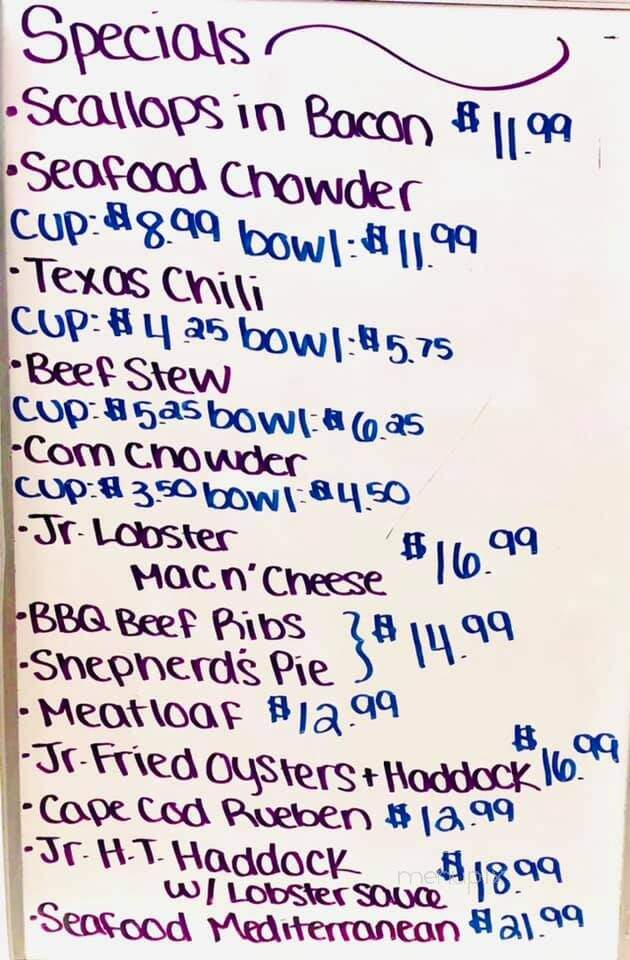 Specials
• Scallops in Bacon $11.99
• Seafood Chowder
cup: $8.99 bowl: $11.99
• Texas Chili
cup: $4.25 bowl: $5.75
• Beef Stew
cup: $5.25 bowl: $6.25
• Corn Chowder
cup: $3.50 bowl: $4.50
• Jr. Lobster
Mac n' Cheese $16.99
• BBQ Beef Ribs
• Shepherd's Pie } $14.99
• Meatloaf $12.99
• Jr. Fried Oysters + Haddock $16.99
• Cape Cod Rueben $12.99
• Jr. H.T. Haddock
w/ Lobster sauce $18.99
• Seafood Mediterranean $21.99
menupix